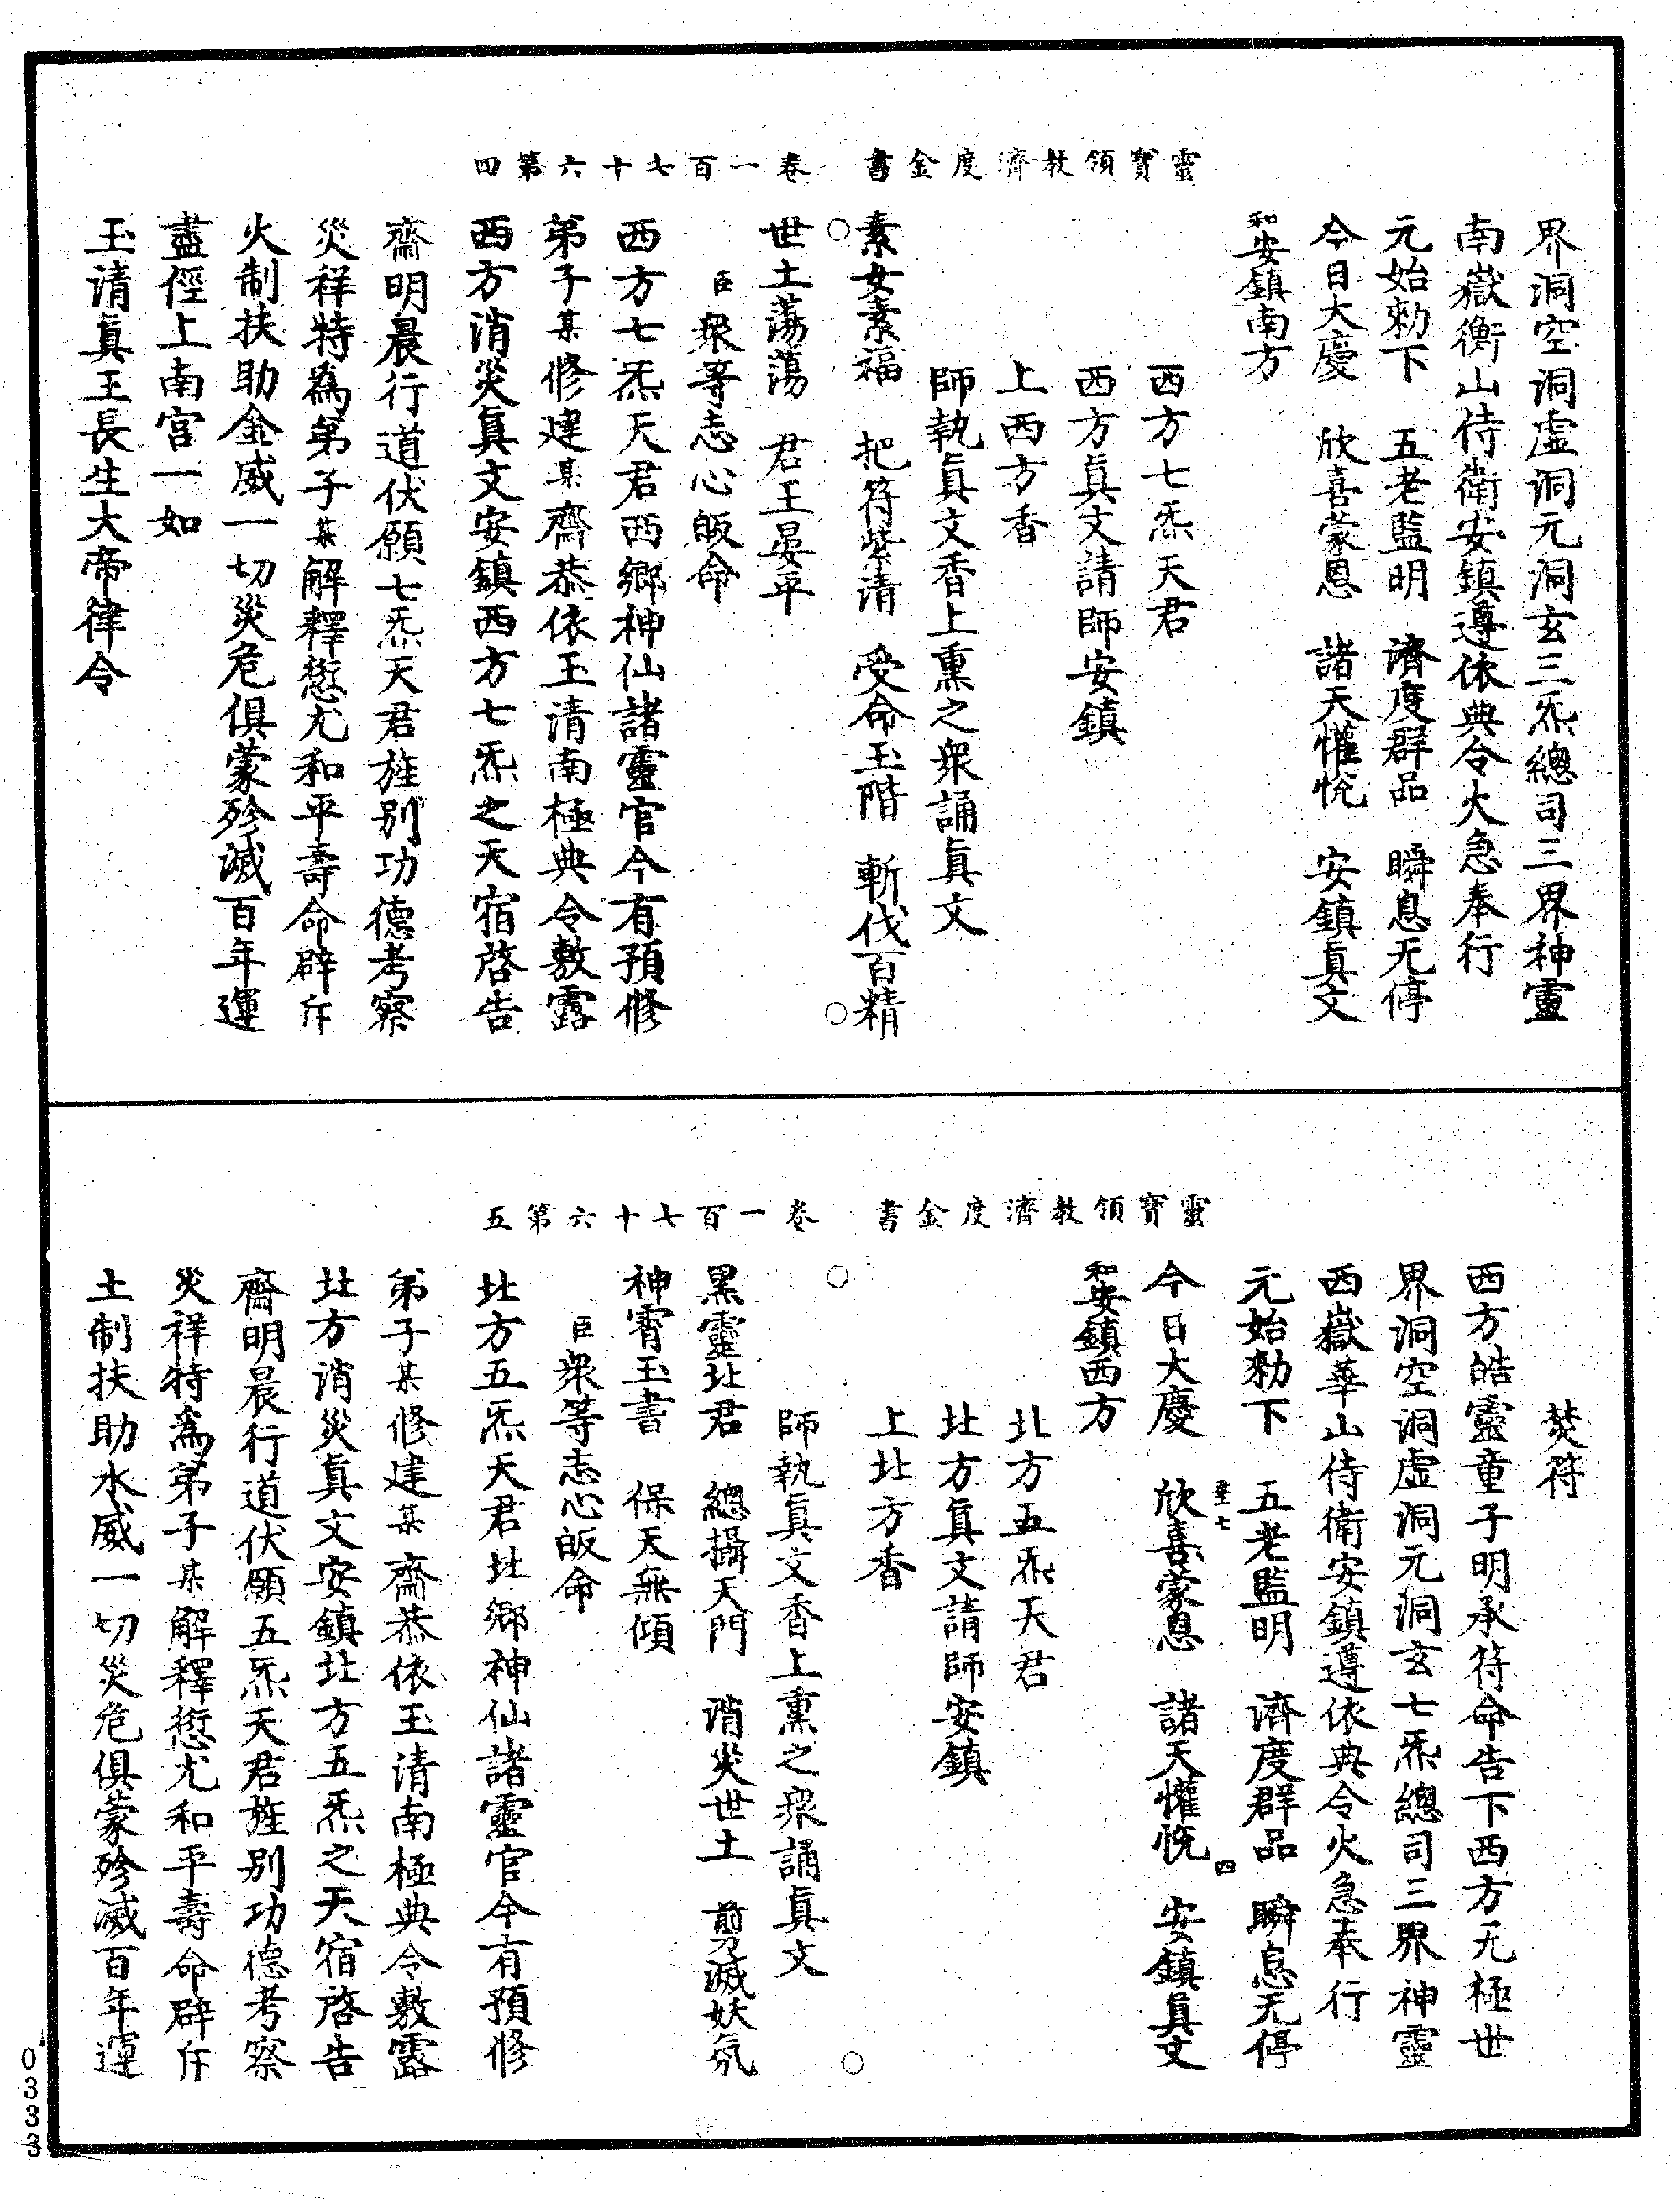 靈寶領教濟度金書　卷一百七十六第四
界洞空洞虛洞元洞玄三炁總司三界神靈
南嶽衡山侍衛安鎮遵依典令火急奉行
元始勑下　五老監明　濟度群品　瞬息无停
今日大慶　欣喜蒙恩　諸天懽悅　安鎮眞文
和安鎮南方
西方七炁天君
西方眞文請師安鎮
上西方香
師執眞文香上熏之衆誦眞文
素女素福　把符紫清　受命玉階　斬伐百精
世土蕩蕩　君王晏平
臣衆等志心皈命
西方七炁天君西鄉神仙諸靈官今有預修
弟子某修建某齋恭依玉清南極典令敷露
西方消災眞文安鎮西方七炁之天宿啓告
齋明晨行道伏願七炁天君旌别功德考察
災祥特爲弟子某解釋愆尤和平壽命辟斥
火制扶助金威一切災危俱蒙殄滅百年運
盡俓上南宮一如
玉清眞王長生大帝律令
靈寶領教濟度金書　卷一百七十六第五
焚符
西方皓靈童子明承符命告下西方无極世
界洞空洞虛洞元洞玄七炁總司三界神靈
西嶽華山侍衛安鎮遵依典令火急奉行
元始勑下　五老監明　濟度群品　瞬息无停
七　四
今日大慶　欣喜蒙恩　諸天懽悅　安鎮眞文
和安鎮西方
北方五炁天君
北方眞文請師安鎮
上北方香
師執眞文香上熏之衆誦眞文
黑靈北君　總攝天門　消災世土　剪滅妖氛
神霄玉書　保天無傾
臣衆等志心皈命
北方五炁天君北鄉神仙諸靈官今有預修
弟子某修建某齋恭依玉清南極典令敷露
北方消災眞文安鎮北方五炁之天宿啓告
齋明晨行道伏願五炁天君旌别功德考察
災祥特爲弟子某解釋愆尤和平壽命辟斥
土制扶助水威一切災危俱蒙殄滅百年運
0333